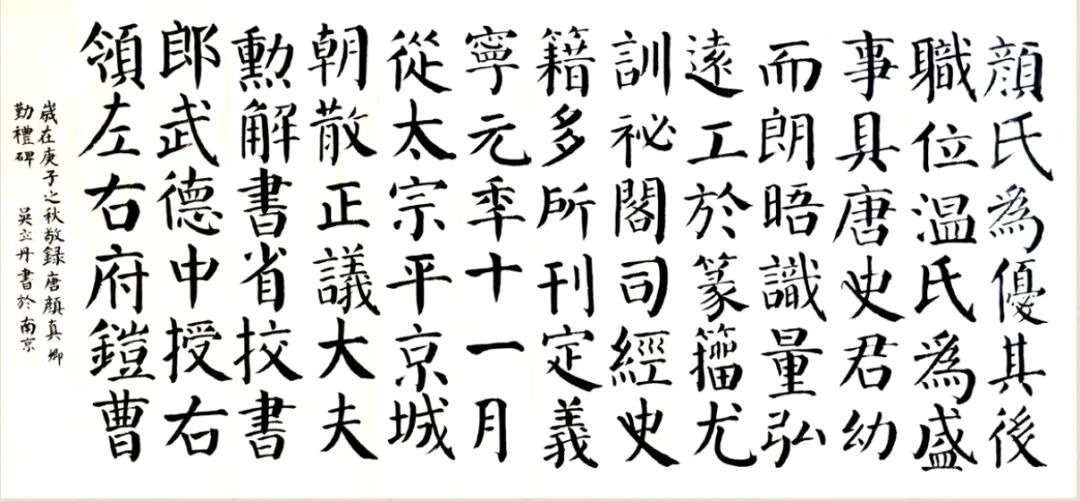 顏氏為優其後
職位溫氏為盛
事具唐史君幼
而朗晤識量弘
遠工於篆籀尤
訓祕閣司經史
籍多所刊定義
寧元年十一月
從太宗平京城
朝散正議大夫
勳解書省挍書
郎武德中授右
領左右府鎧曹
歲在庚子之秋敬録唐顏真卿
勤禮碑 吳立丹書於南京